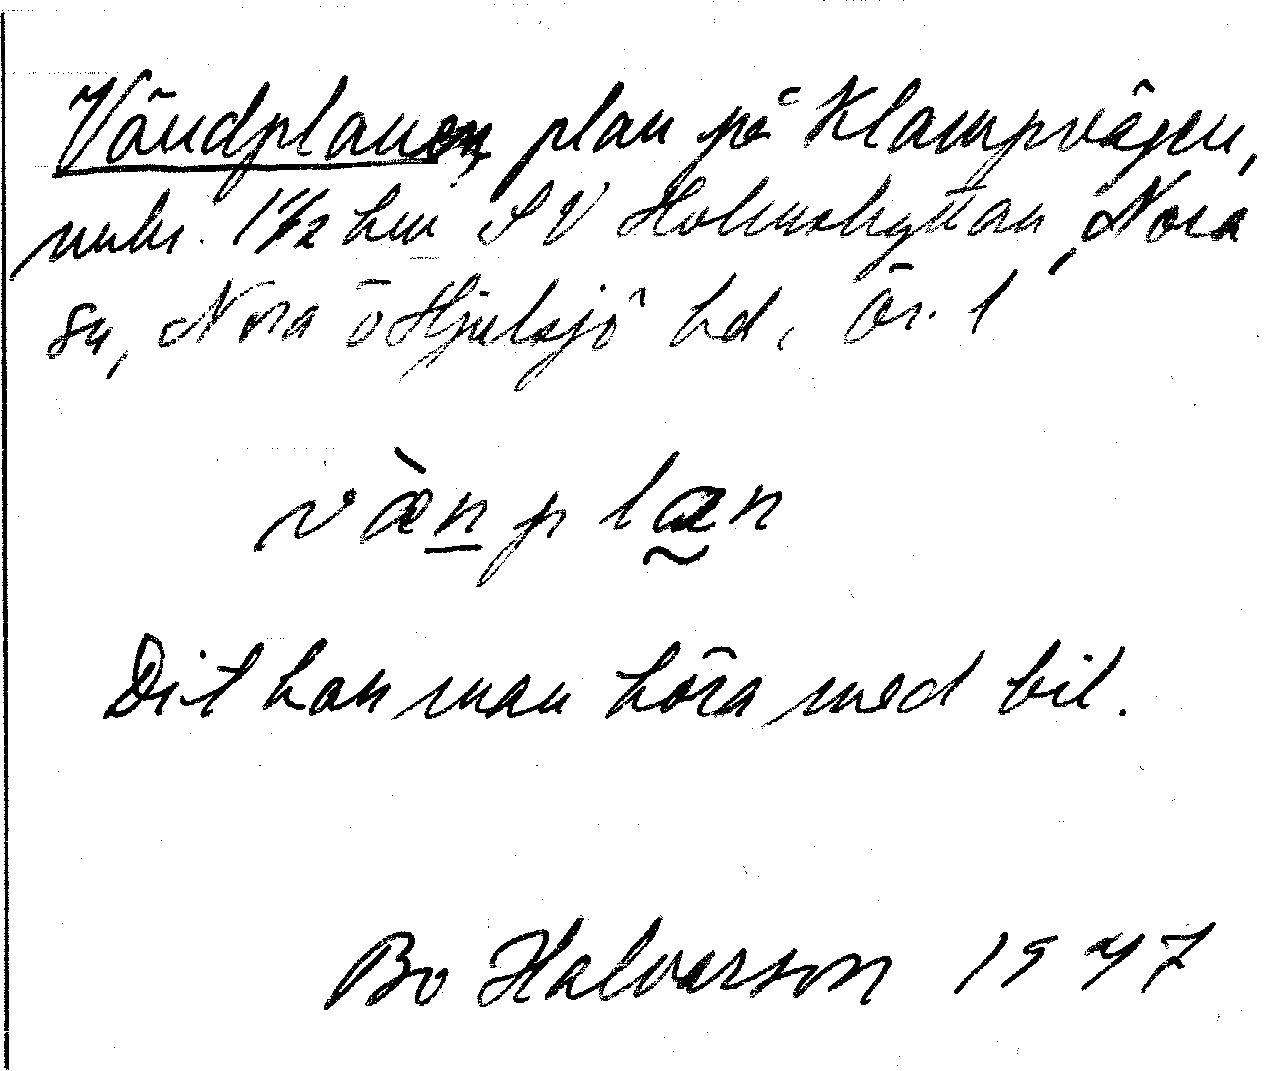 Vändplanen, plan på Klampvägen,
unbr. 1 1/2 km SV Holmshyttan, Nora
sn, Nora o Hjulsjö bd, Ör. l
vä̀nplæn
Dit kan man köra med bil.
Bo Halvarson 1947